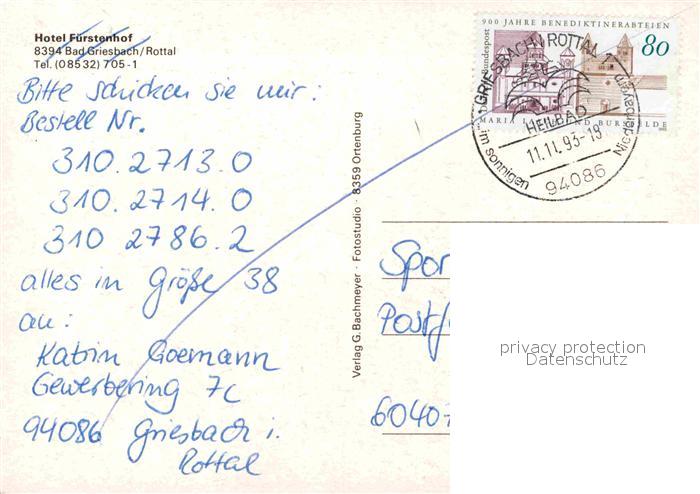 Hotel Fürstenhof
8394 Bad Griesbach/Rottal
Tel. (08532) 705-1
Bitte schicken sie mir:
Bestell Nr.
310.2713.0
310.2714.0
310 2786.2
alles in Größe 38
an:
Katrin Goemann
Gewerbering 7c
94086 Griesbach i.
Rottal
Verlag G. Bachmeyer · Fotostudio · 8359 Ortenburg
900 JAHRE BENEDIKTINERABTEIEN
Deutsche Bundespost
80
MARIA LAACH UND BURSFELDE
GRIESBACH I ROTTAL 1
HEILBAD
11.11.93-18
94086
...im sonnigen Niederbayern
Spor
Postf
60407
privacy protection
Datenschutz